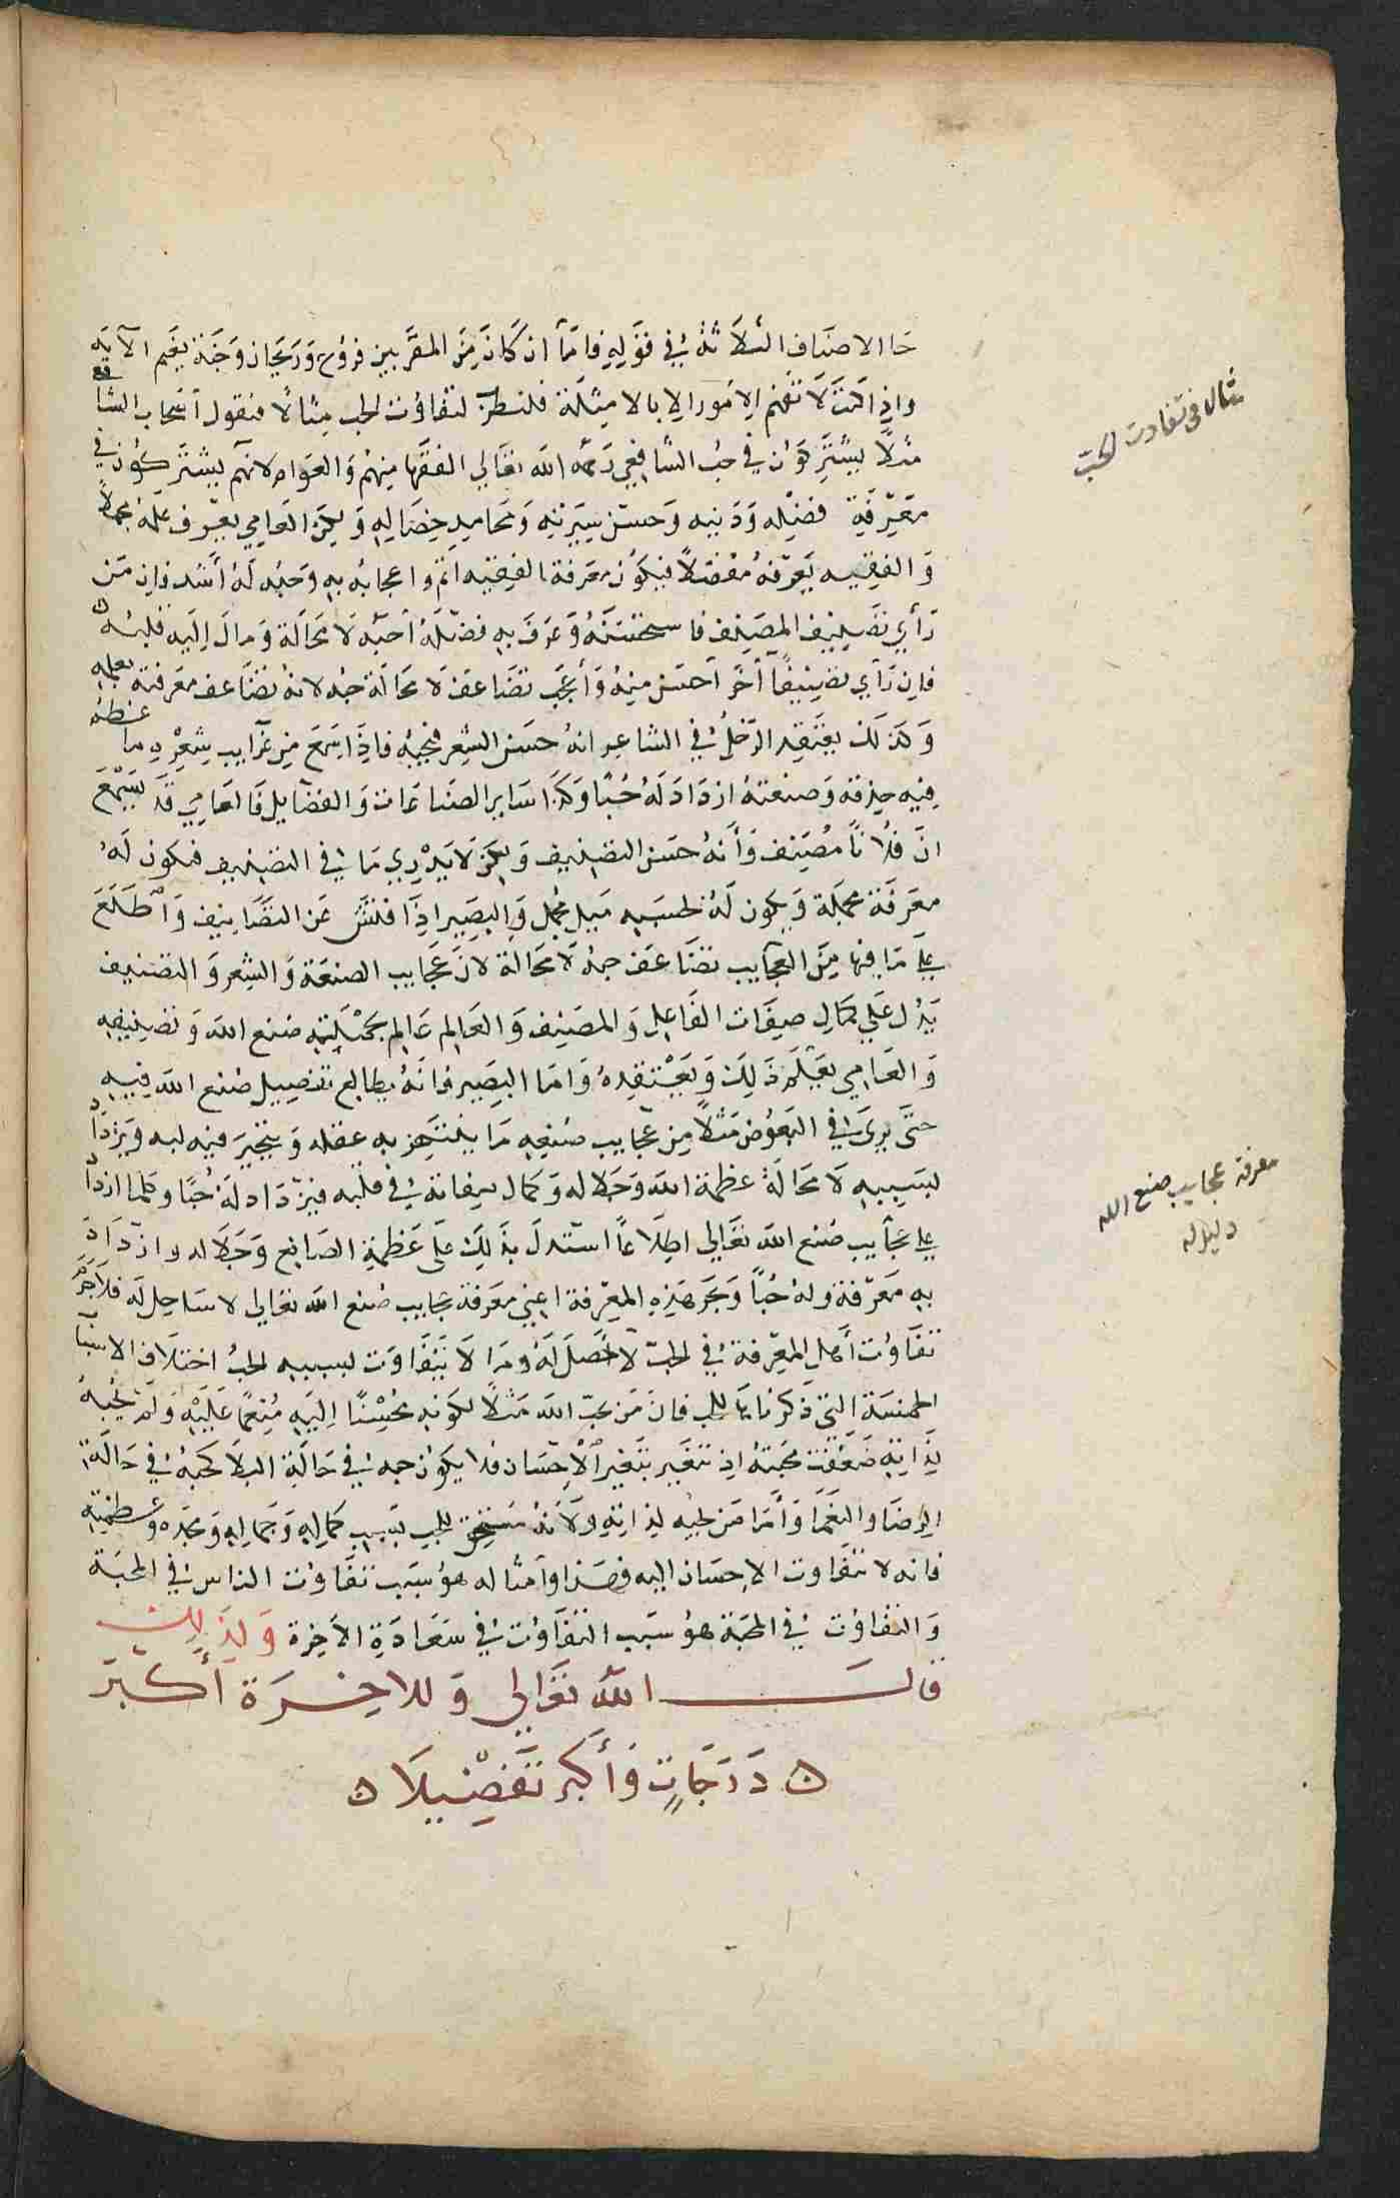 حا الاصناف الثلاثة في قوله فاما ان كان من المقربين فروح وريحان وجنة نعيم الآية
واذا كنت لا تفهم الامور الا بالامثلة فلننظر لتفاوت الحب مثالا فنقول أصحاب الشافعي
مثلا يشتركون في حب الشافعي رحمه الله تعالي الفقها منهم والعوام لانهم يشتركون في
معرفة فضله ودينه وحسن سيرته ومحامد خصاله ولكن العامي يعرف علمه مجملا
والفقيه يعرفه مفصلا فيكون معرفة الفقيه اتم واعجابه به وحبه له أشد فان من
رأي تصنيف المصنف فاستحسنه وعرف به فضله أحبه لا محالة ومال إليه قلبه
فان رأي تصنيفا آخر أحسن منه وأعجب تضاعف لا محالة حبه لانه تضاعف معرفته بعلمه
وكذلك يعتقد الرجل في الشاعر انه حسن الشعر فيحبه فاذا سمع من غرايب شعره ما عظم
فيه حذقه وصنعته ازداد له حبا وكذا ساير الصناعات والفضايل فالعامي قد يسمع
ان فلانا مصنف وأنه حسن التصنيف ولكن لا يدري ما في التصنيف فيكون له
معرفة مجملة ويكون له بحسبه ميل مجمل والبصير اذا فتش عن التصانيف واطلع
علي ما فيها من العجايب تضاعف حبه لا محالة لان عجايب الصنعة والشعر والتصنيف
يدل علي كمال صفات الفاعل والمصنف والعالم عالم بجملته صنع الله وتصنيفه
والعامي يعلم ذلك ويعتقده واما البصير فانه يطالع تفصيل صنع الله فيه
حتى يرى في البعوض مثلا من عجايب صنعه ما ينبهر به عقله ويتحير فيه لبه ويزداد
بسببه لا محالة عظمة الله وجلاله وكمال صفاته في قلبه فيزداد له حبا وكلما ازداد
علي عجايب صنع الله تعالي اطلاعا استدل بذلك على عظمة الصانع وجلاله وازداد
به معرفة وله حبا وبحر هذه المعرفة اعني معرفة عجايب صنع الله تعالي لا ساحل له فلا جرم
تفاوت أهل المعرفة في الحب لا حصر له ومما لا يتفاوت بسببه الحب اختلاف الاسباب
الخمسة التي ذكرناها للحب فان من يحب الله مثلا لكونه محسنا اليه منعما عليه ولم يحبه
لذاته ضعفت محبته اذ تتغير بتغير الاحسان فلا يكون حبه في حالة البلا كحبه في حالة
الرضا والنعما وأما من يحبه لذاته ولانه مستحق للحب بسبب كماله وجماله ومجده وعظمته
فانه لا يتفاوت الاحسان اليه فهذا وامثاله هو سبب تفاوت الناس في المحبة
والتفاوت في المحبة هو سبب التفاوت في سعادة الاخرة ولذلك
قال الله تعالي وللاخرة أكبر
درجات وأكبر تفضيلا
مثال فى تفاوت الحب
معرفة عجايب صنع الله
دليل له